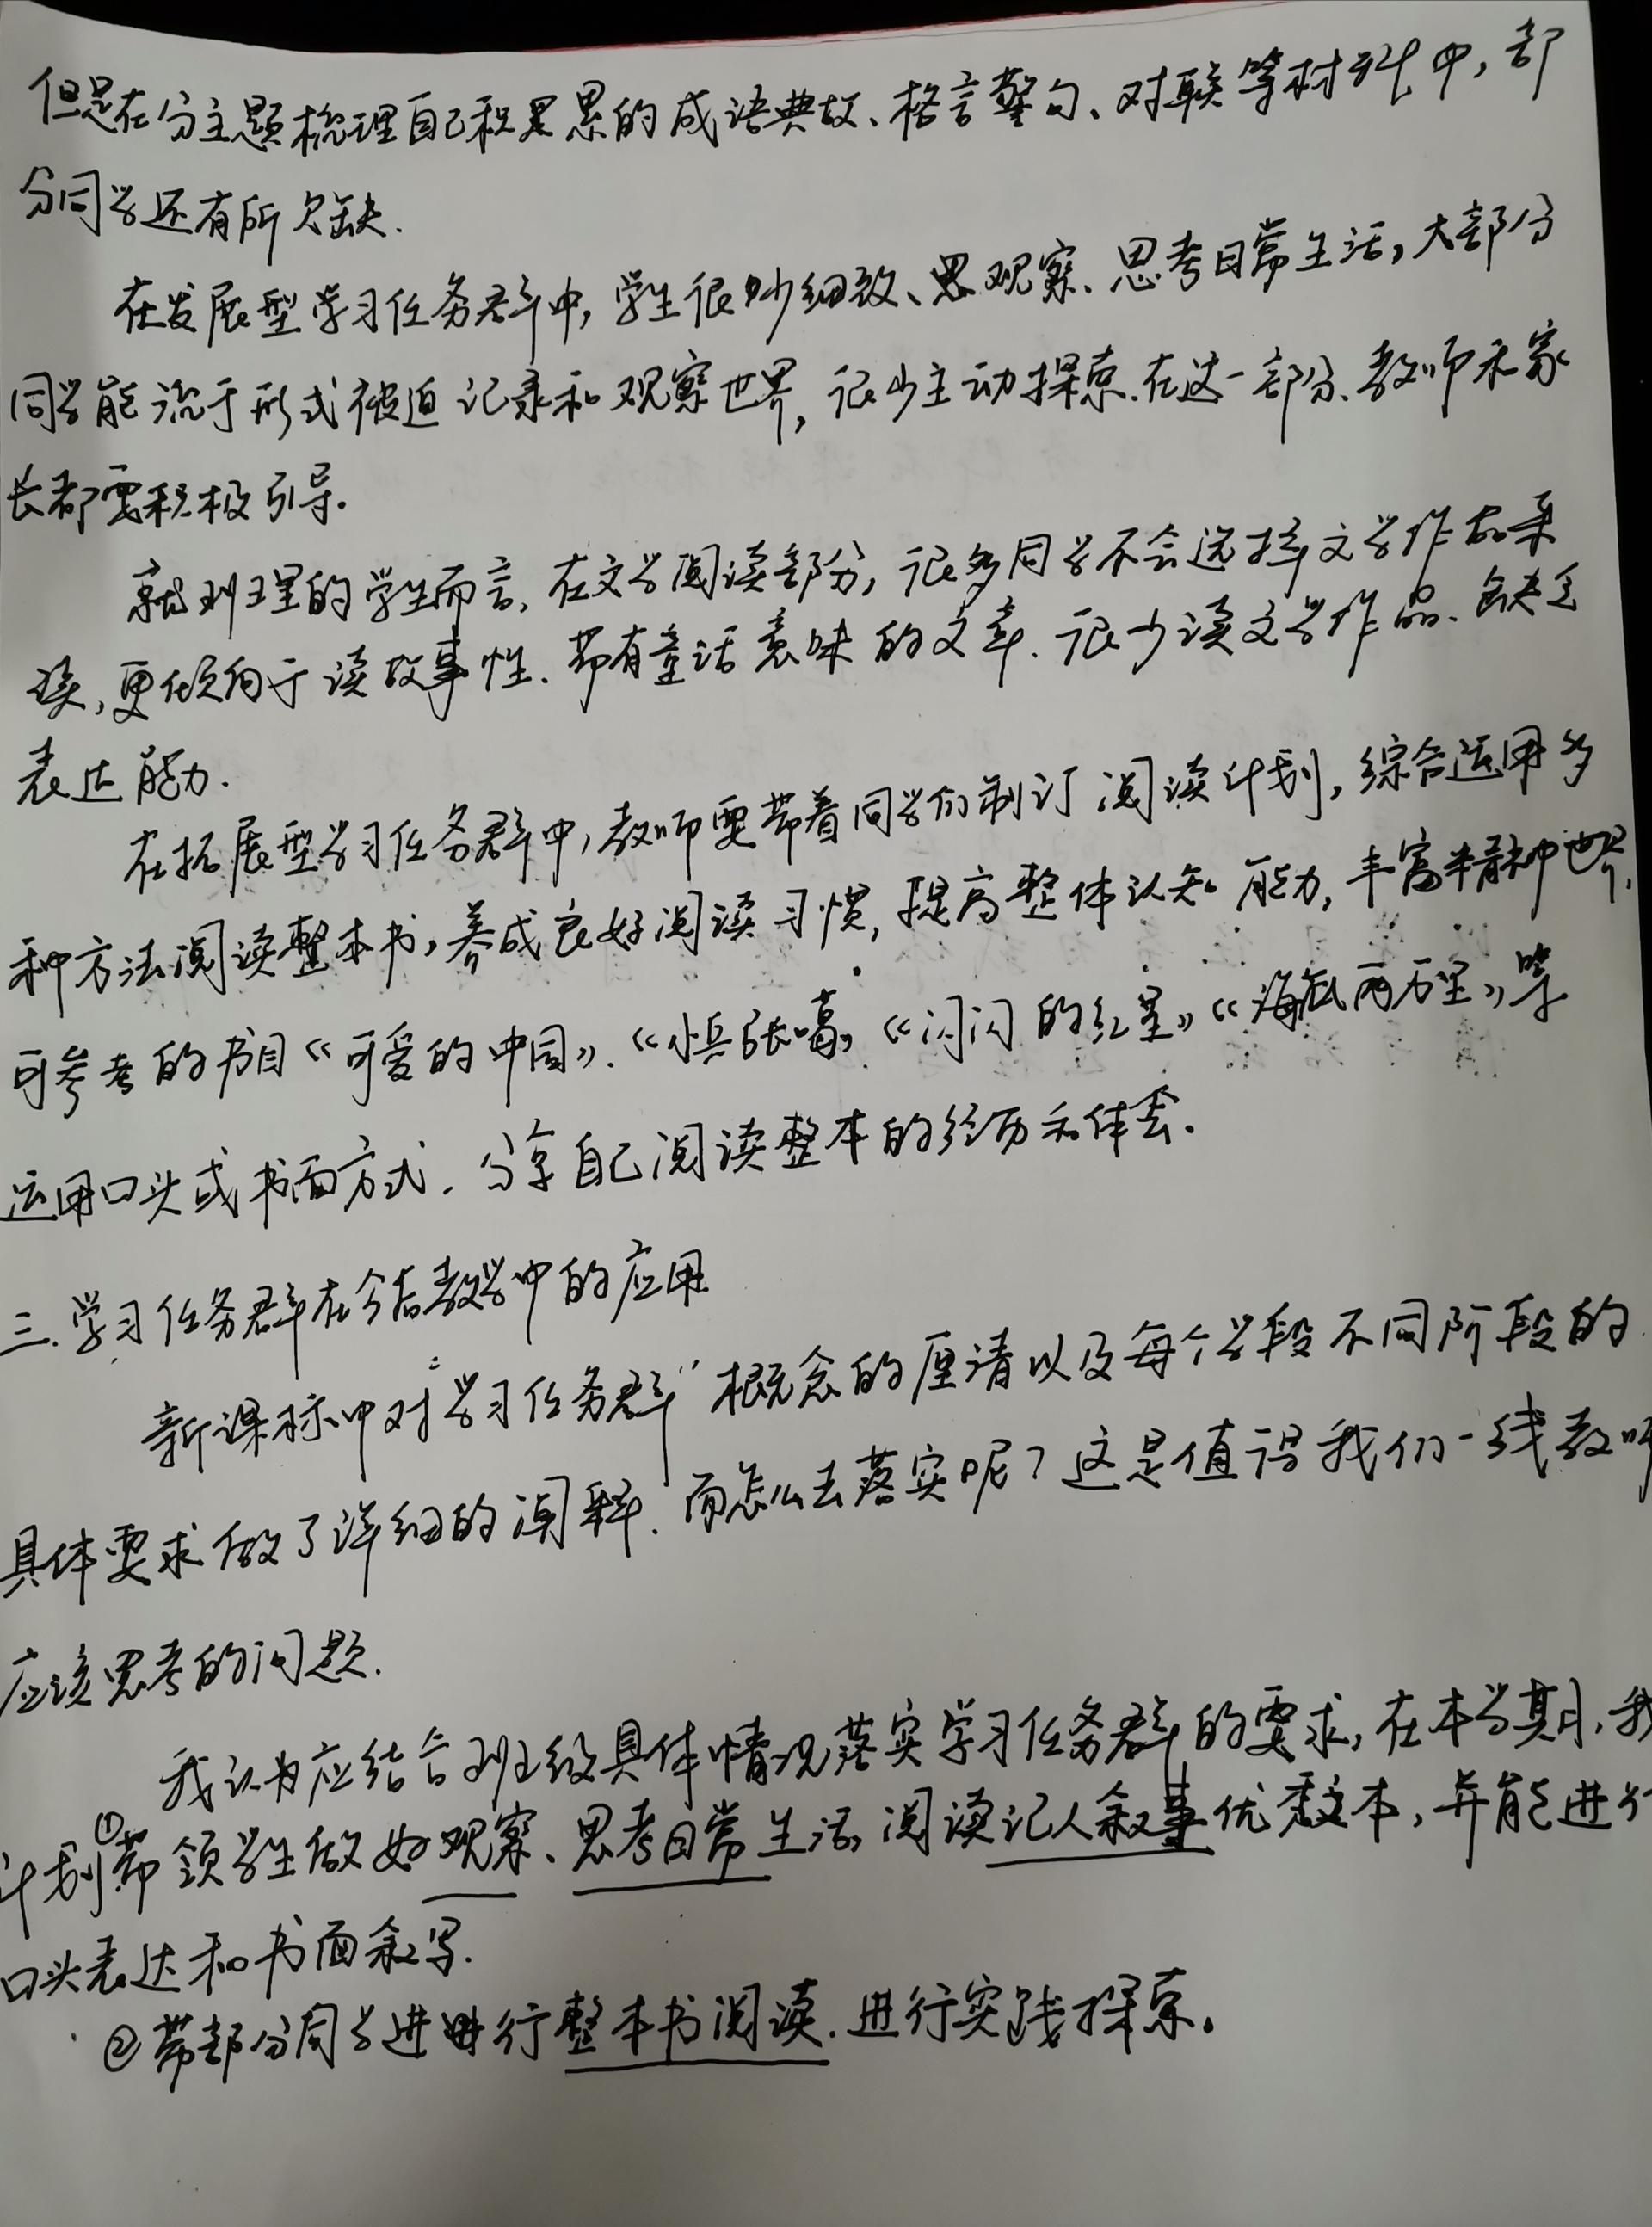 但是在分主题梳理自己积累的成语典故、格言警句、对联等材料中,部
分同学还有所欠缺.
在发展型学习任务群中,学生很少细致、观察、思考日常生活,大部分
同学能流于形式被迫记录和观察世界,很少主动探索.在这一部分、教师和家
长都要积极引导.
就班里的学生而言,在文学阅读部分,很多同学不会选择文学作品来
读,更倾向于读故事性、带有童话意味的文章.很少读文学作品、缺乏
表达能力.
在拓展型学习任务群中,教师要带着同学们制订阅读计划,综合运用多
种方法阅读整本书,养成良好阅读习惯,提高整体认知能力,丰富精神世界,
可参考的书目《可爱的中国》.《小兵张嘎》《闪闪的红星》《海底两万里》等
运用口头或书面方式.分享自己阅读整本的经历和体会.
三.学习任务群在今后教学中的应用
新课标中对“学习任务群”概念的厘清以及每个学段不同阶段的
具体要求做了详细的阐释.而怎么去落实呢?这是值得我们一线教师
应该思考的问题.
我认为应结合班级具体情况落实学习任务群的要求,在本学期,我
计划①带领学生做好观察、思考日常生活,阅读记人叙事优秀文本,并能进行
口头表达和书面叙写.
②带部分同学进行整本书阅读.进行实践探索。